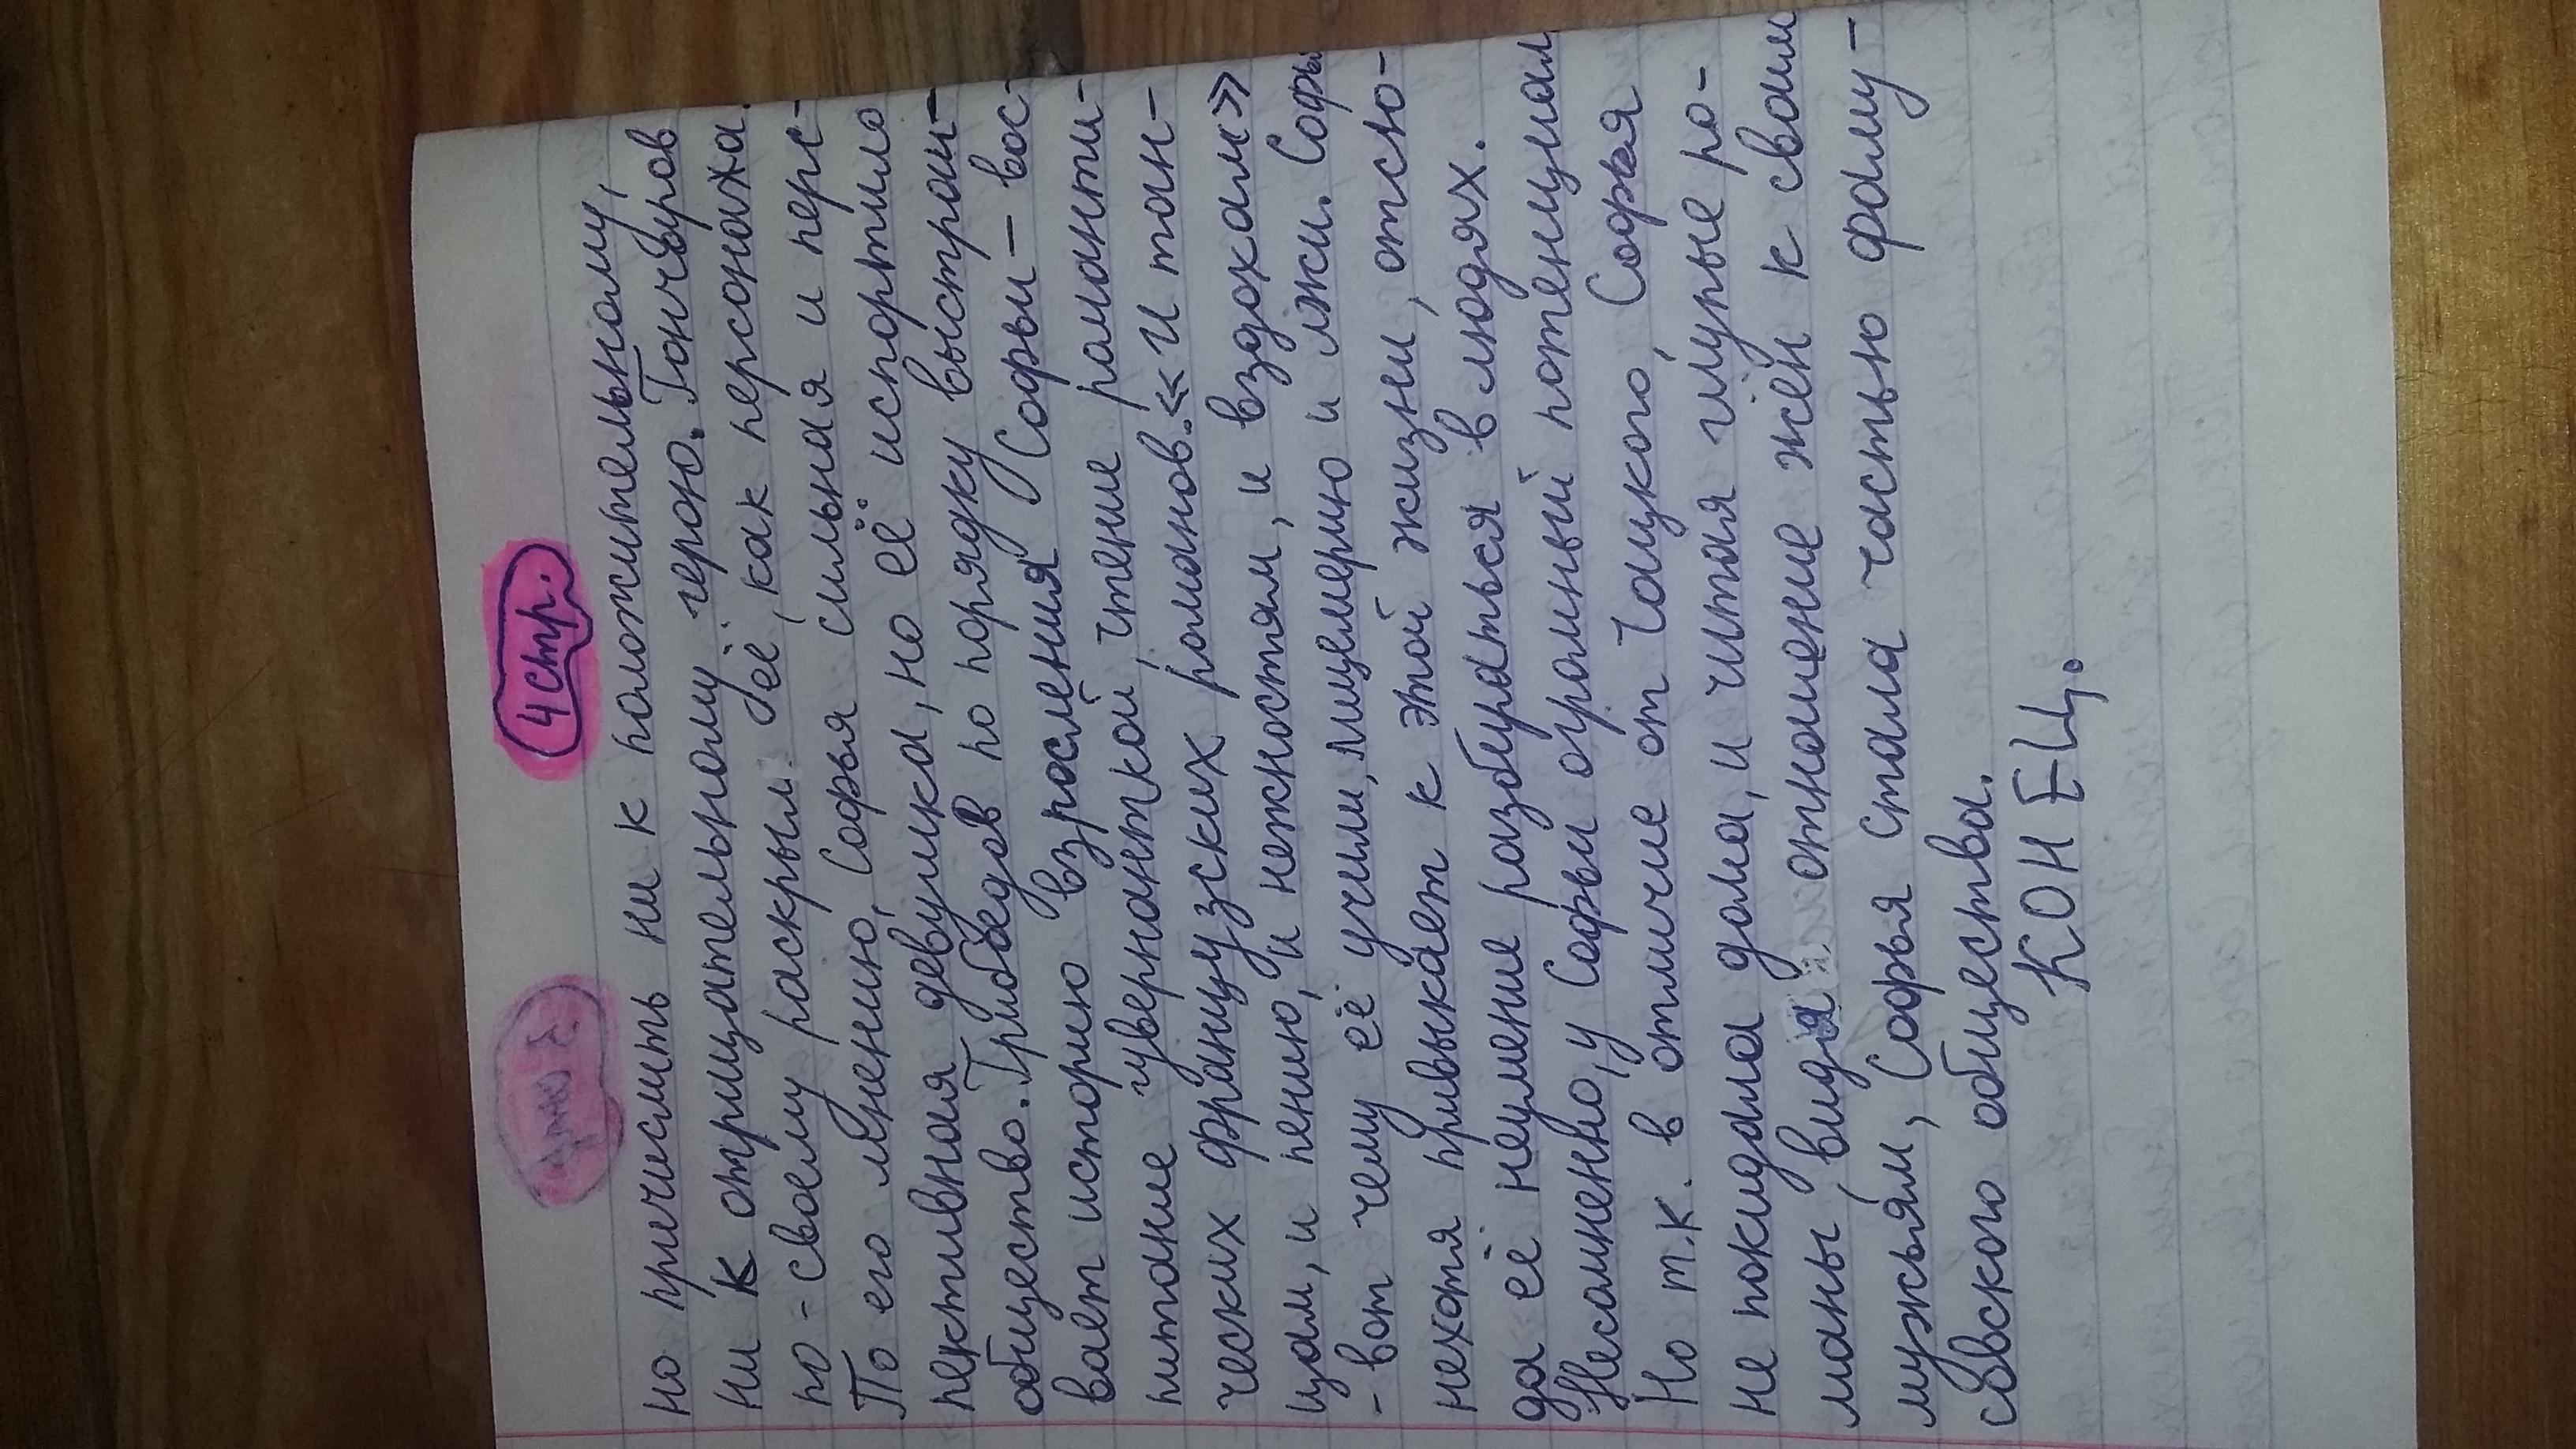 4 стр.
но причислить ни к положительному,
ни к отрицательному герою. Гончаров
по-своему раскрыл её, как персонажа.
По его мнению, Софья сильная и перс-
пективная девушка, но её испортило
общество. Грибоедов по порядку выстраи-
вает историю взросления Софьи - вос-
питание гувернанткой, чтение романти-
ческих французских романов. «И тан-
цам, и пению, и нежностям, и вздохам»
- вот чему её учили, лицемерию и лжи. Софья
нехотя привыкает к этой жизни, отсю-
да её неумение разбираться в людях.
Несомненно, у Софьи огромный потенциал,
Но т.к. в отличие от Чацкого, Софья
не покидала дома, и читая глупые ро-
маны, видя отношение жён к своим
мужьям, Софья стала частью фаму-
совского общества.
КОНЕЦ.